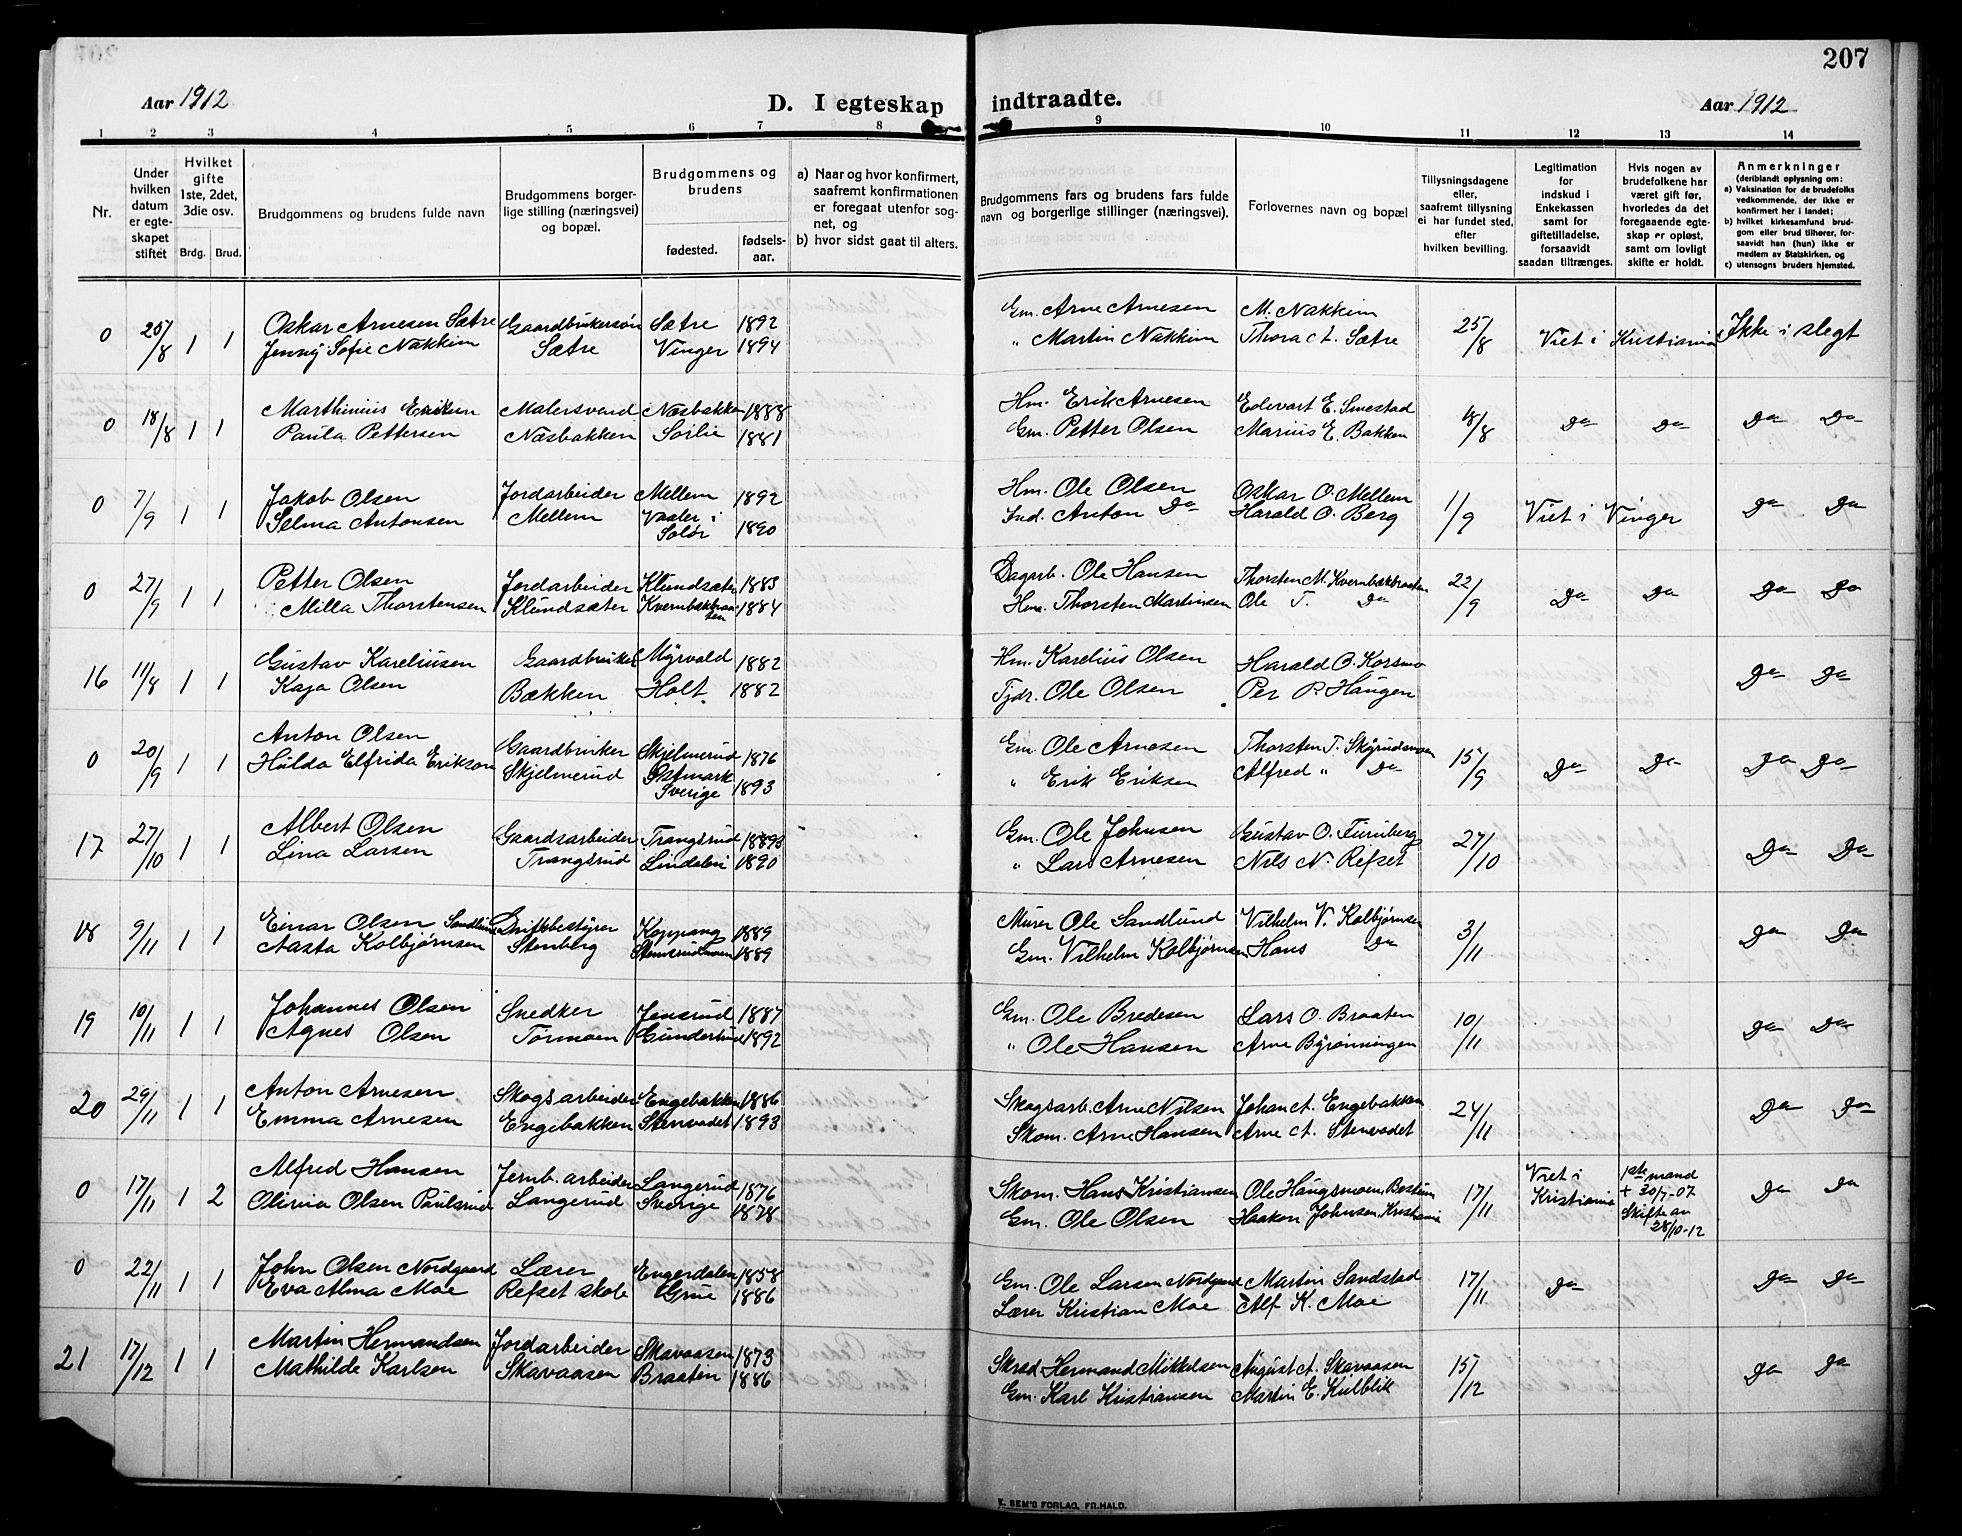 207
Aar 1912
D. I egteskap indtraadte.
Aar 1912
1 2 3 4 5 6 7 8 9 10 11 12 13 14
Nr.
Under hvilken datum er egteskapet stiftet
Hvilket gifte 1ste, 2det, 3die osv.
Brdg. Brud.
Brudgommens og brudens fulde navn
Brudgommens borgerlige stilling (næringsvei) og bopæl.
Brudgommens og brudens
fødested. fødselsaar.
a) Naar og hvor konfirmert, saafremt konfirmationen er foregaat utenfor sognet, og
b) hvor sidst gaat til alters.
Brudgommens fars og brudens fars fulde navn og borgerlige stillinger (næringsvei).
Forlovernes navn og bopæl
Tillysningsdagene eller, saafremt tillysning ei har fundet sted, efter hvilken bevilling.
Legitimation for indskud i Enkekassen samt for giftetilladelse, forsaavidt saadan tiltrænges.
Hvis nogen av brudefolkene har været gift før, hvorledes da det foregaaende egteskap er opløst, samt om lovligt skifte er holdt.
Anmerkninger
(deriblandt oplysning om:
a) Vaksination for de brudefolks vedkommende, der ikke er konfirmert her i landet;
b) hvilket kirkesamfund brudgom eller brud tilhører, forsaavidt han (hun) ikke er medlem av Statskirken, og
c) utensogns bruders hjemsted.
0 25/8 1 1 Oskar Arnesen Sætre Gaardbrukersøn Sætre 1892 Gm. Arne Arnesen M. Nakkim 25/8 Viet i Kristiania Ikke i slegt
Jenny Sofie Nakkim Sætre Vinger 1894 " Martin Nakkim Thora A. Sætre
0 18/8 1 1 Marthinius Eriksen Malersvend Næsbakken 1888 Hm. Erik Arnesen Edevart E. Smestad 18/8 Do Do Do Do
Paula Pettersen Næsbakken Sorlie 1881 Gm. Petter Olsen Marius E. Bakken
0 7/9 1 1 Jakob Olsen Jordarbeider Mellem 1892 Hm. Ole Olsen Oskar O. Mellem 1/9 Viet i Vinger Do Do
Selma Antonsen Mellem Vaaler i Solør 1890 Ind. Anton Do Harald O. Berg
0 27/9 1 1 Petter Olsen Jordarbeider Klundsæter 1883 Dagarb. Ole Hansen Thorsten M. Kvernbækbraaten 22/9 Do Do Do Do
Milla Thorstensen Klundsæter Kvernbækbraaten 1884 Hm. Thorsten Martinsen Ole T. Do
16 11/8 1 1 Gustav Kareliusen Gaardbruker Myrvold 1882 Hm. Karelius Olsen Harald O. Korsmo Do Do
Kaja Olsen Bækken Holt 1882 Tjdr. Ole Olsen Per P. Haugen
0 20/9 1 1 Anton Olsen Gaardbruker Skjelmerud 1876 Gm. Ole Arnesen Thorsten T. Skyrudsmoen 15/9 Do Do Do Do
Hulda Elfrida Erikson Skjelmerud Östmark Sverige 1893 " Erik Eriksen Alfred " Do
17 27/10 1 1 Albert Olsen Gaardsarbeider Trangsrud Gm. Ole Johnsen Gustav O. Furuberg 27/10 Do Do
Lina Larsen Trangsrud Lindalen 1890 " Lars Arnesen Nils N. Refset
18 9/11 1 1 Einar Olsen Sandlund Driftsbestyrer Koppang 1889 Murer Ole Sandlund Vilhelm V. Kolbjørnsen 3/11 Do Do
Aasta Kolbjørnsen Stenberg Stemsrudmoen 1889 Gm. Vilhelm Kolbjørnsen Hans Do
19 10/11 1 1 Johannes Olsen Snedker Jensrud 1887 Gm. Ole Bredesen Lars O. Braaten 10/11 Do Do
Agnes Olsen Tormoen Gundersrud 1892 " Ole Hansen Arne Byrønningen
20 29/11 1 1 Anton Arnesen Skogsarbeider Engebakken 1886 Skogsarb. Arne Nilsen Johan A. Engebakken 24/11 Do Do
Emma Arnesen Engebakken Stenvadet 1893 Skom. Arne Hansen Arne A. Stenvadet
0 17/11 1 2 Alfred Hansen Jernb. arbeider Langerud 1876 Skom. Hans Kristiansen Ole Haugsmoen, Bestum 17/11 Viet i Kristiania 1ste mand + 30/7-07 Skifte av 28/10-12 Do Do
Olivia Olsen Paulsrud Langerud Sverige 1878 Gm. Ole Olsen Haakon Johnsen, Kristiania
0 22/11 1 1 John Olsen Nordgaard Lærer Engerdalen 1858 Gm. Ole Larsen Nordgaard Martin Sandstad 17/11 Do Do Do
Eva Alma Moe Refset skole Grue 1886 Lærer Kristian Moe Alf K. Moe
21 17/12 1 1 Martin Hermandsen Jordarbeider Skavaasen 1873 Skræd. Hermand Mikkelsen August A. Skavaasen 15/12 Do Do
Mathilde Karlsen Skavaasen Braaten 1886 Gm. Karl Kristiansen Martin E. Kulblik
E. SEM'S FORLAG, FR.HALD.